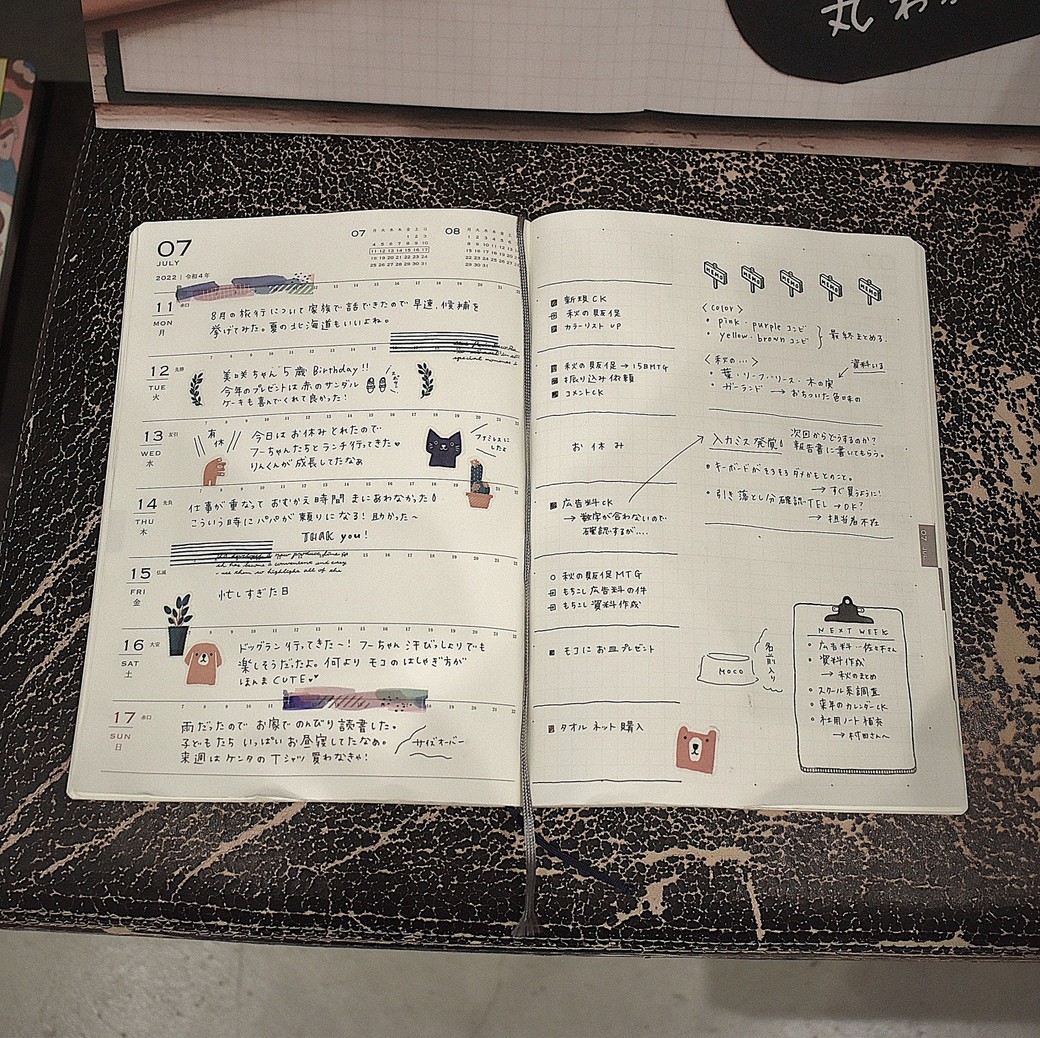 丸わか
07
JULY
2022 | 令和4年
07 月 火 水 木 金 土 日
1 2 3
4 5 6 7 8 9 10
11 12 13 14 15 16 17
18 19 20 21 22 23 24
25 26 27 28 29 30 31
08 月 火 水 木 金 土 日
1 2 3 4 5 6 7
8 9 10 11 12 13 14
15 16 17 18 19 20 21
22 23 24 25 26 27 28
29 30 31
11 赤口
MON
月
8月の旅行について家族で話できたので早速、候補を
挙げてみた。夏の北海道もいいよね。
12 先勝
TUE
火
美咲ちゃん5歳 Birthday!!
今年のプレゼントは赤のサンダル
ケーキも喜んでくれて良かった!
13 友引
WED
水
有休
今日はお休みとれたので
フーちゃんたちとランチ行ってきた
りんくんが成長してたなぁ
ファミレスに
したよ
14 先負
THU
木
仕事が重なっておむかえ時間まにあわなかった
こういう時にパパが頼りになる!助かった〜
THAK you!
15 仏滅
FRI
金
忙しすぎた日
16 大安
SAT
土
ドッグラン行ってきた〜!フーちゃん汗びっしょりでも
楽しそうだったよ。何よりモコのはしゃぎ方が
ほんまCUTE
17 赤口
SUN
日
雨だったのでお家でのんびり読書した。
子どもたちいっぱいお昼寝してたなぁ。
来週はケンタのTシャツ買わなきゃ!
サイズオーバー
新規CK
秋の販促
カラーリストUP
秋の販促→15日MTG
振り込み依頼
コメントCK
お休み
広告料CK
→数字が合わないので
確認するが....
秋の販促MTG
もちこし広告料の件
もちこし資料作成
モコにお皿プレゼント
タオルネット購入
MEMO MEMO MEMO MEMO MEMO
<color>
・pink・purpleコンビ
・yellow・brownコンビ
最終まとめる.
<秋の…>
資料いる
・葉・リーフ・リース・木の実
・ガーランド
→おちついた色味の
入力ミス発覚!
次回からどうするのか?
報告書に書いてもらう。
・キーボードがそろそろダメかもとのこと。
→すぐ買うように!
・引き落とし分確認-TEL→OK?
→担当者不在
MOCO
名前入り
NEXT WEEK
広告料…佐々木さん
資料作成
→秋のまとめ
スクール系調査
来年のカレンダーCK
社用ノート補充
→村田さんへ
07